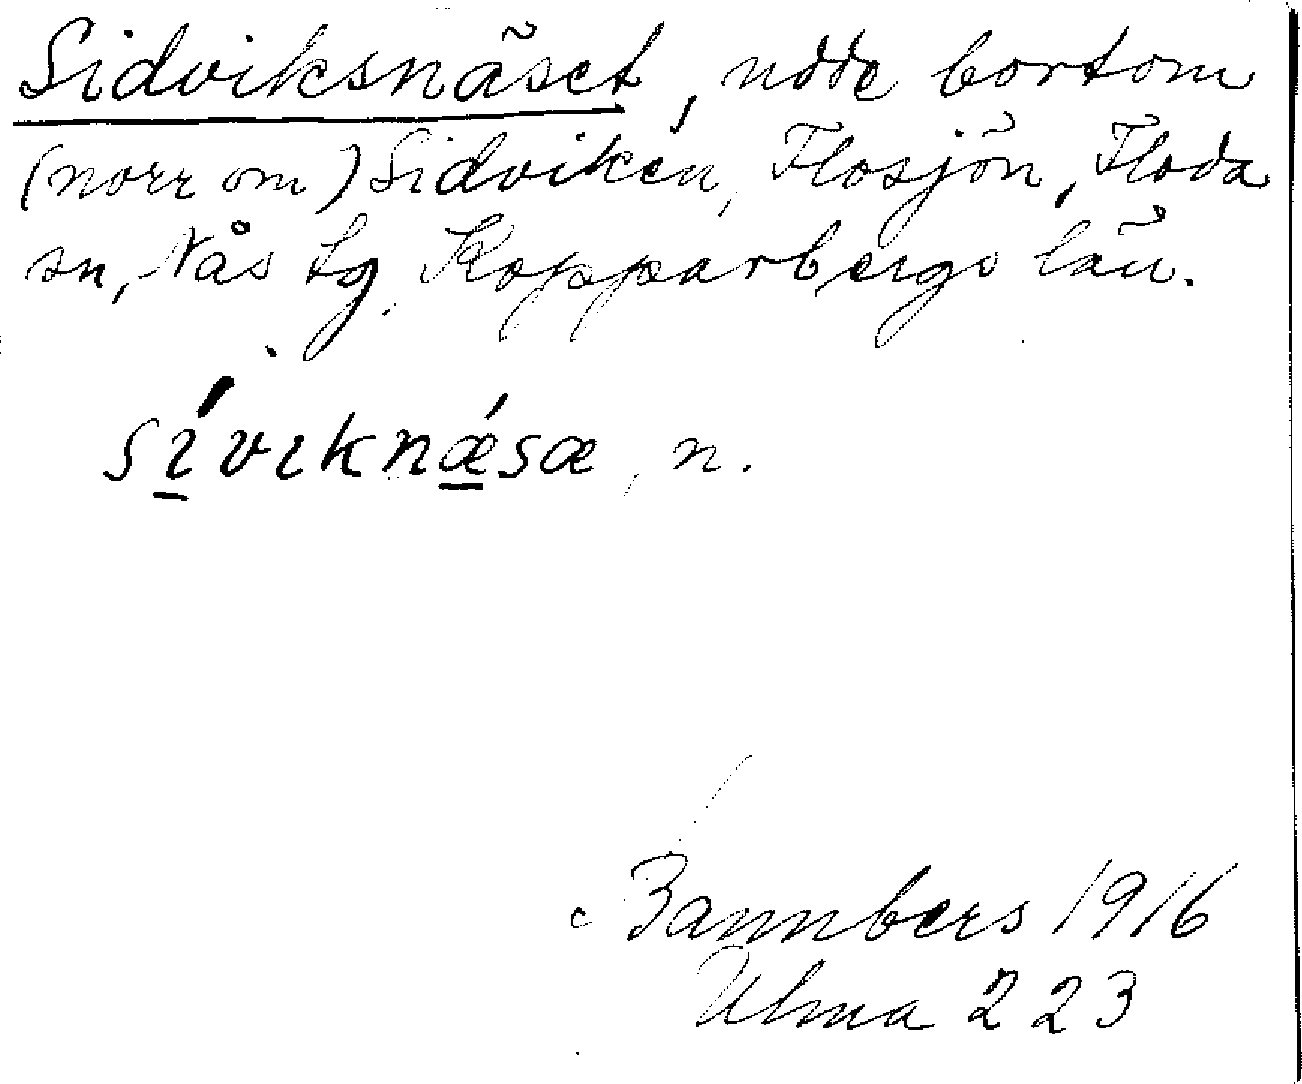 Sidviksnäset, udde bortom
(norr om) Sidviken, Flosjön, Floda
sn, Nås tg, Kopparbergs län.
sí̱vıknǽ̱sæ, n.
Bannbers 1916
Ulma 223